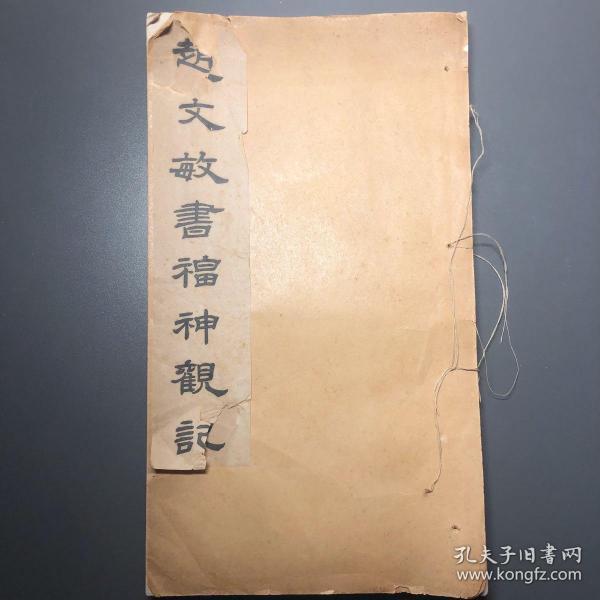 趙文敏書福神觀記
孔夫子旧書网
www.kongfz.com